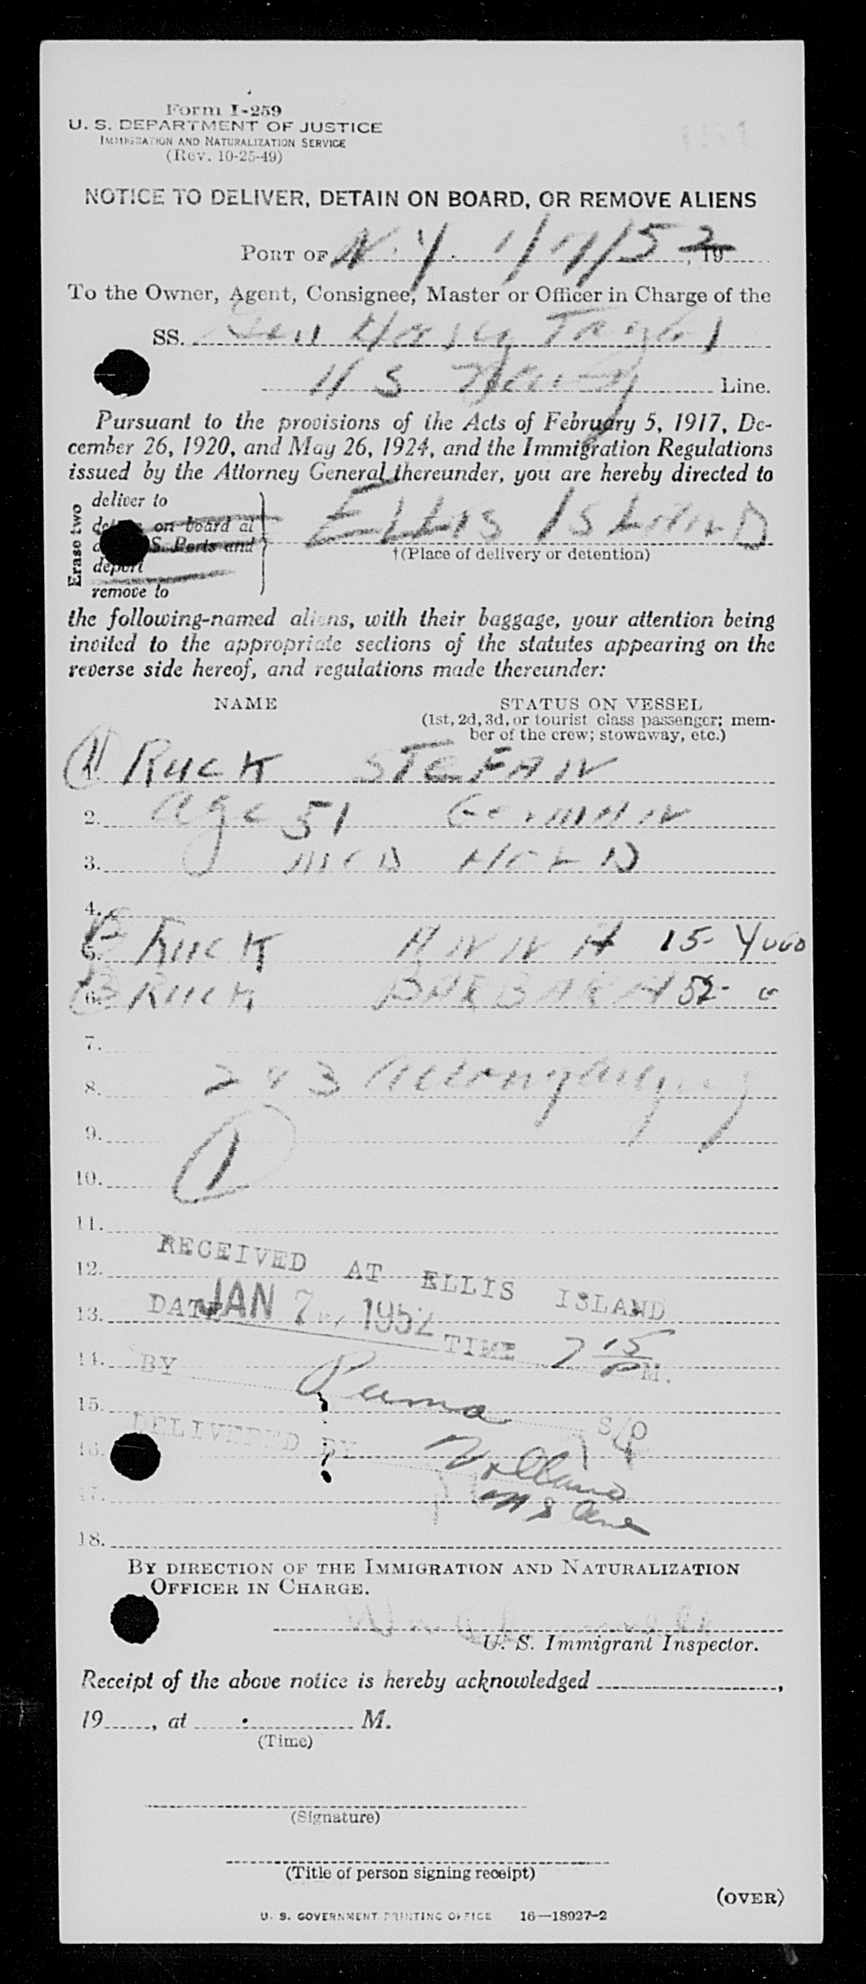 Form I-259
U. S. DEPARTMENT OF JUSTICE
IMMIGRATION AND NATURALIZATION SERVICE
(Rev. 10-25-49)
NOTICE TO DELIVER, DETAIN ON BOARD, OR REMOVE ALIENS
PORT OF N.Y. 1/7/52, 19
To the Owner, Agent, Consignee, Master or Officer in Charge of the
SS. Gen Harry Taylor
U S Navy Line.
Pursuant to the provisions of the Acts of February 5, 1917, De-
cember 26, 1920, and May 26, 1924, and the Immigration Regulations
issued by the Attorney General thereunder, you are hereby directed to
Erase two
deliver to
on board at
S. Ports and
deport
remove to
ELLIS ISLAND
†(Place of delivery or detention)
the following-named aliens, with their baggage, your attention being
invited to the appropriate sections of the statutes appearing on the
reverse side hereof, and regulations made thereunder:
NAME STATUS ON VESSEL
(1st, 2d, 3d, or tourist class passenger; mem-
ber of the crew; stowaway, etc.)
(1) RUCK STEFAN
2. Age 51 GERMAN
3. MED HELD
4.
5. RUCK ANNA 15- YUGO
6. RUCK BARBARA 52- "
7.
8. 2 & 3 Accompanying
9.
(1)
10.
11.
RECEIVED AT ELLIS ISLAND
12.
13. DATE JAN 7 1952 TIME 7 15 P M.
14. BY
15. S/O
16. DELIVERED BY
17.
18.
BY DIRECTION OF THE IMMIGRATION AND NATURALIZATION
OFFICER IN CHARGE.
U. S. Immigrant Inspector.
Receipt of the above notice is hereby acknowledged ,
19 , at M.
(Time)
(Signature)
(Title of person signing receipt)
(OVER)
U. S. GOVERNMENT PRINTING OFFICE 16—18927-2